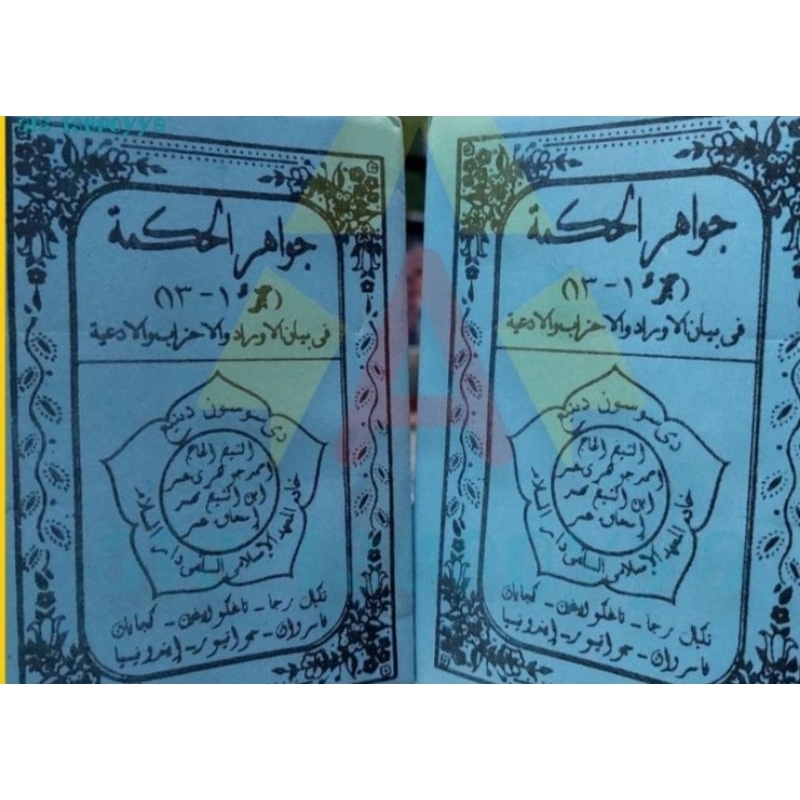 جواهر الحكمة
(جزء ١ - ١٣)
في بيان الاوراد والاحزاب والادعية
دي سوسون دينيڠ
الشيخ الحاج
احمد جوهري عمر
ابن الشيخ محمد
إسحاق عمر
خادم المعهد الإسلامي السلفي دار السلام
تيكال رجا - تاغكولاغين - كجايان
فاسروان - جوا تيمور - إندونيسيا
جواهر الحكمة
(جزء ١ - ١٣)
في بيان الاوراد والاحزاب والادعية
دي سوسون دينيڠ
الشيخ الحاج
احمد جوهري عمر
ابن الشيخ محمد
إسحاق عمر
خادم المعهد الإسلامي السلفي دار السلام
تيكال رجا - تاغكولاغين - كجايان
فاسروان - جوا تيمور - إندونيسيا